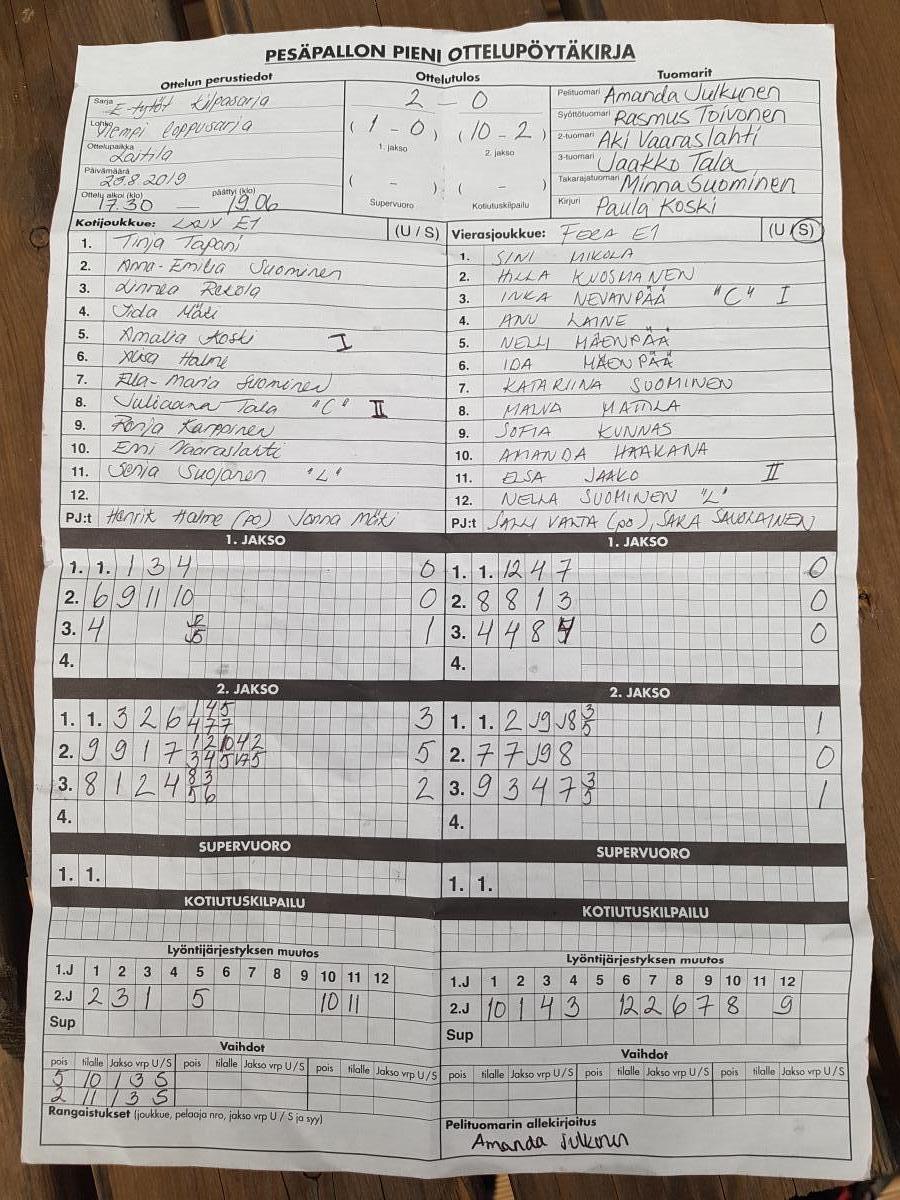 PESÄPALLON PIENI OTTELUPÖYTÄKIRJA
Ottelun perustiedot
Sarja E-tytöt kilpasarja
Lohko Ylempi loppusarja
Ottelupaikka Laitila
Päivämäärä 29.8.2019
Ottelu alkoi (klo) päättyi (klo)
17.30 — 19.06
Ottelutulos
2 - 0
(1 - 0) (10 - 2)
1. jakso 2. jakso
( - ) ( - )
Supervuoro Kotiutuskilpailu
Tuomarit
Pelituomari Amanda Julkunen
Syöttötuomari Rasmus Toivonen
2-tuomari Aki Vaaraslahti
3-tuomari Jaakko Tala
Takarajatuomari Minna Suominen
Kirjuri Paula Koski
Kotijoukkue: E1 (U / S)
1. Tinja Tapani
2. Anna-Emilia Suominen
3. Linnea Rekola
4. Iida Mäki
5. Amalia Koski I
6. Alisa Halme
7. Ella-Maria Suominen
8. Juliaana Tala "C" II
9. Ronja Karppinen
10. Emi Vaaraslahti
11. Senja Suojanen "L"
12.
PJ:t Henrik Halme (po) Jonna Mäki
Vierasjoukkue: FERA E1 (U / S)
1. SINI MIKOLA
2. HILLA KUOSMANEN
3. INKA NEVANPÄÄ "C" I
4. ANU LAINE
5. NELLI MÄENPÄÄ
6. IDA MÄENPÄÄ
7. KATARIINA SUOMINEN
8. MALVA MATTILA
9. SOFIA KUNNAS
10. AMANDA HAAKANA
11. ELSA JAAKO II
12. NELLA SUOMINEN "L"
PJ:t SALLI VAHTA (po), SARA SAVOLAINEN
1. JAKSO
1. 1. 1 3 4 0
2. 6 9 11 10 0
3. 4 1
4.
1. JAKSO
1. 1. 12 4 7 0
2. 8 8 1 3 0
3. 4 4 8 0
4.
2. JAKSO
1. 1. 3 2 6 1 4 5 3
4 7 7
2. 9 9 1 7 1 2 10 4 2 5
3. 8 1 2 4 8 3 2
5 6
4.
2. JAKSO
1. 1. 2 J9 J8 3/5 1
2. 7 7 J9 8 0
3. 9 3 4 7 3/5 1
4.
SUPERVUORO
1. 1.
SUPERVUORO
1. 1.
KOTIUTUSKILPAILU
KOTIUTUSKILPAILU
Lyöntijärjestyksen muutos
1.J 1 2 3 4 5 6 7 8 9 10 11 12
2.J 2 3 1 5 10 11
Sup
Lyöntijärjestyksen muutos
1.J 1 2 3 4 5 6 7 8 9 10 11 12
2.J 10 1 4 3 12 2 6 7 8 9
Sup
Vaihdot
pois tilalle Jakso vrp U / S pois tilalle Jakso vrp U / S pois tilalle Jakso vrp U / S
5 10 1 3 S
2 11 1 3 S
Rangaistukset (joukkue, pelaaja nro, jakso vrp U / S ja syy)
Vaihdot
pois tilalle Jakso vrp U / S pois tilalle Jakso vrp U / S pois tilalle Jakso vrp U / S
Pelituomarin allekirjoitus
Amanda Julkunen